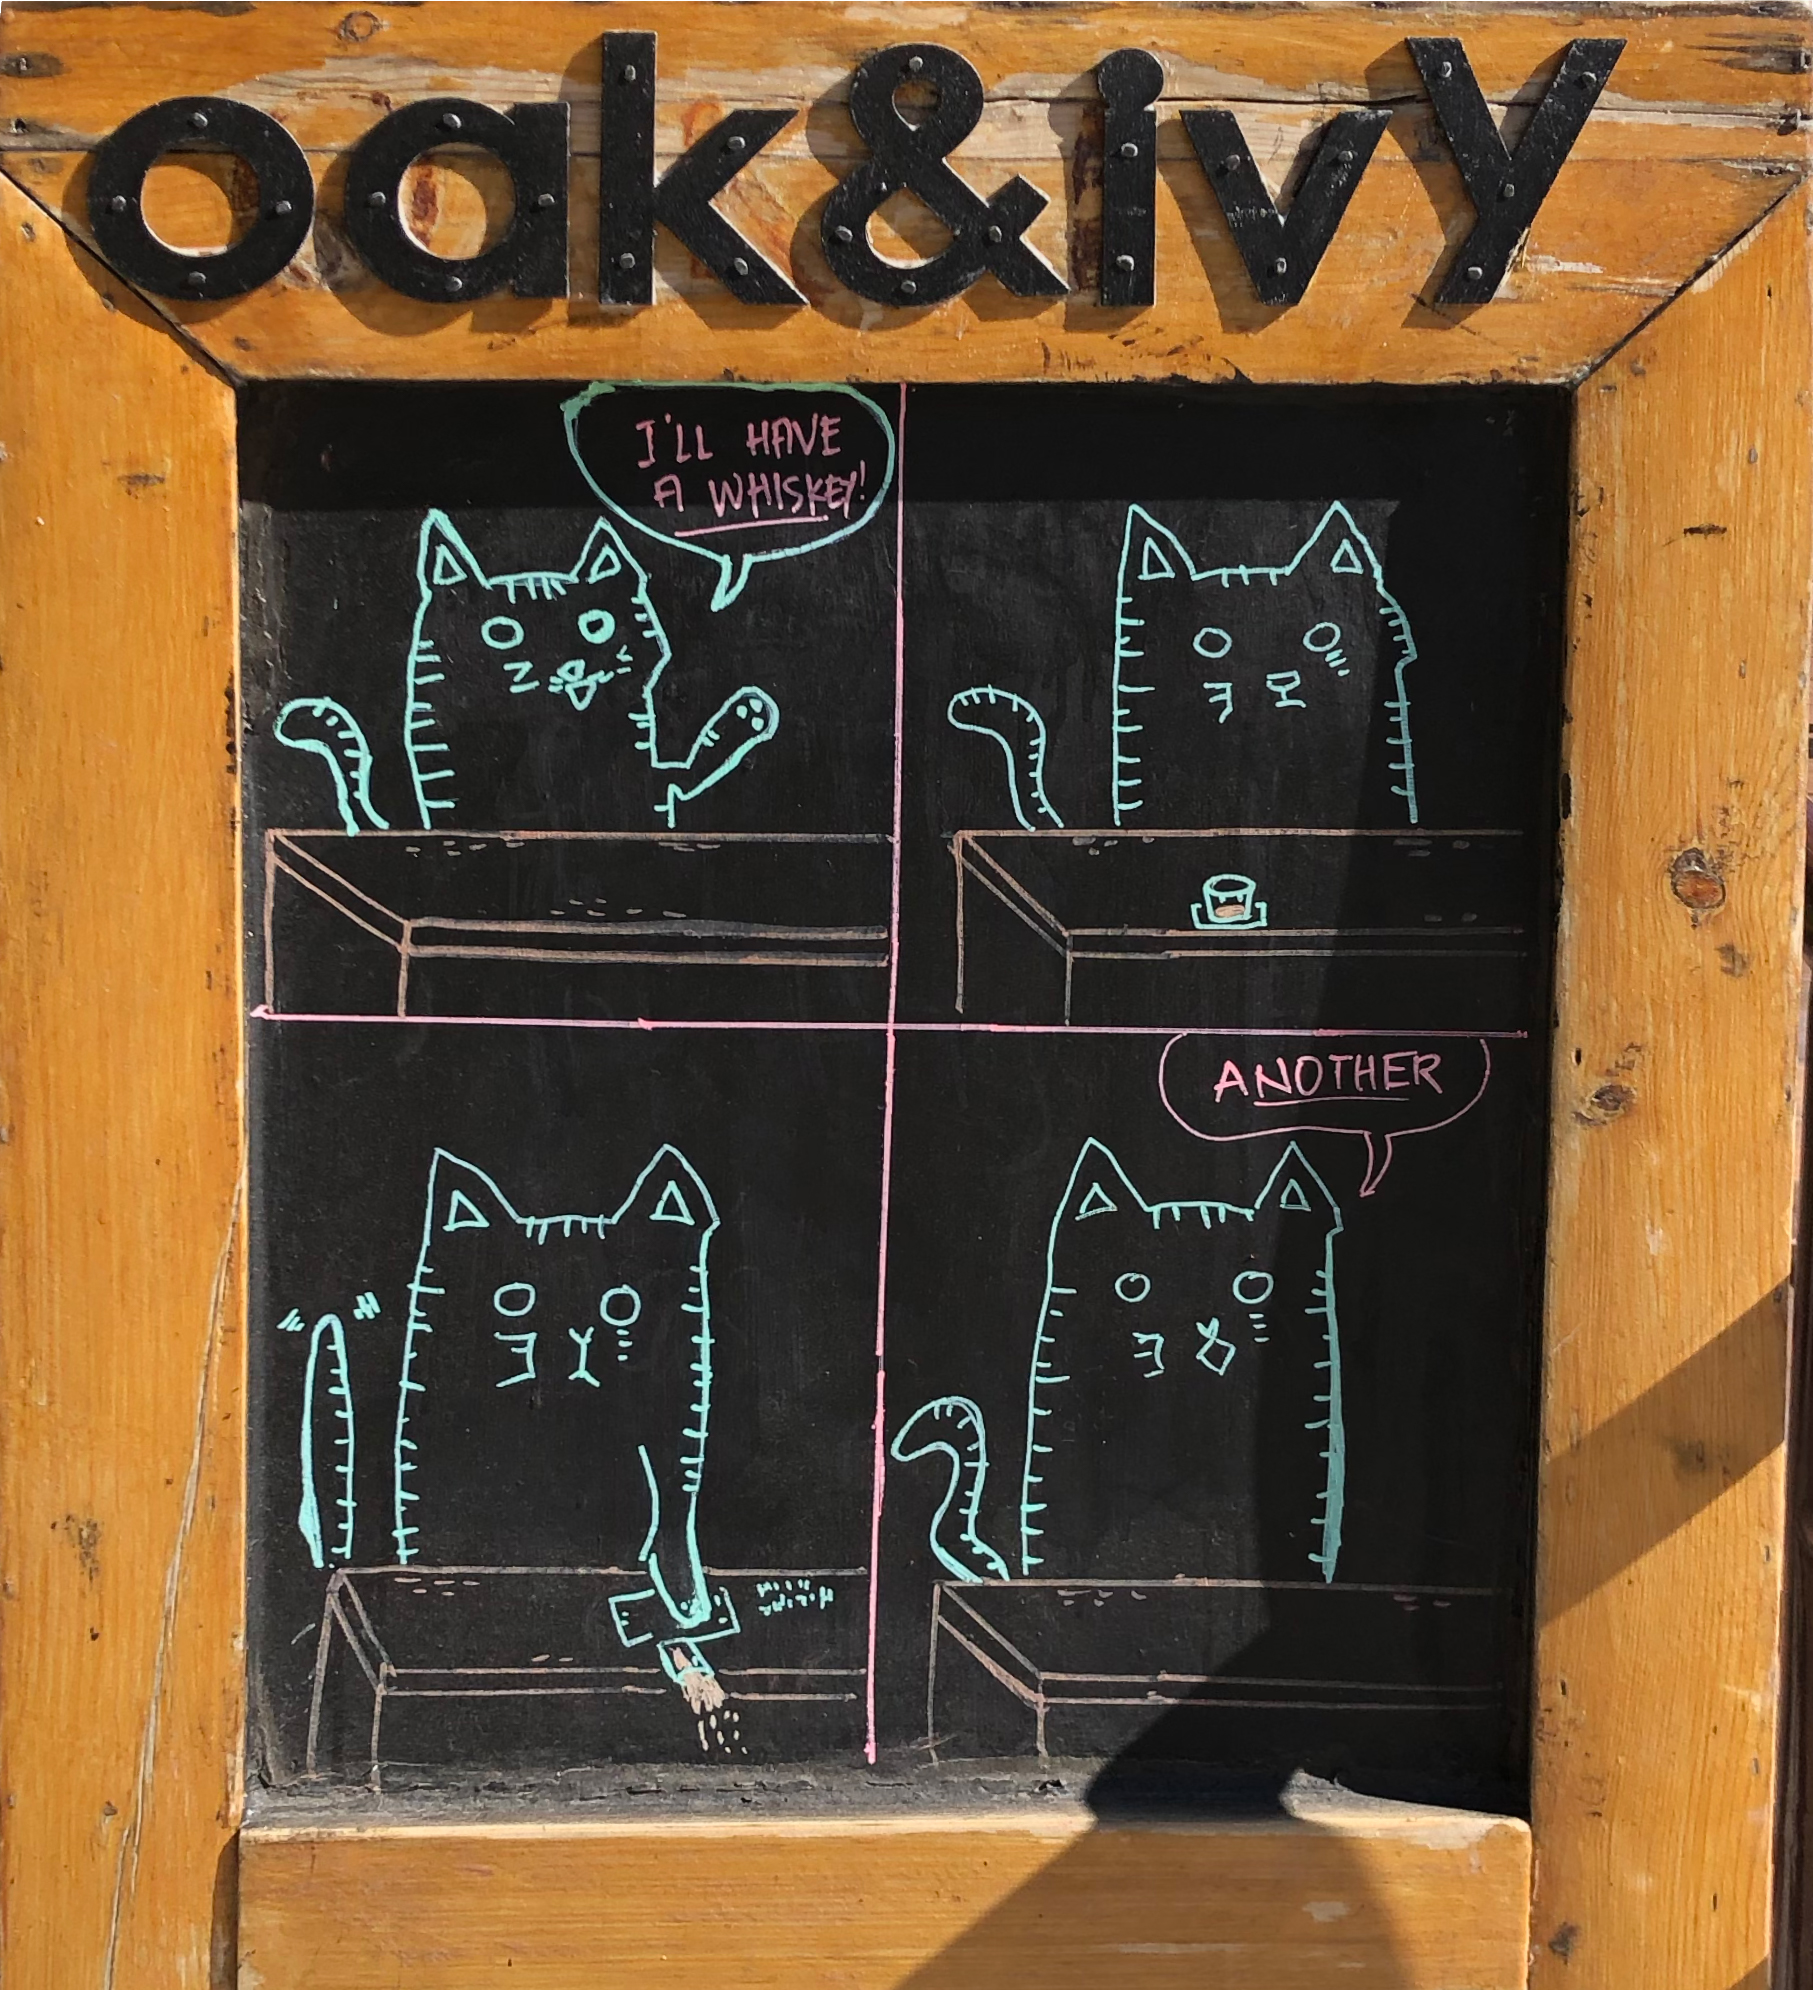 oak&ivy
I'LL HAVE
A WHISKEY!
ANOTHER